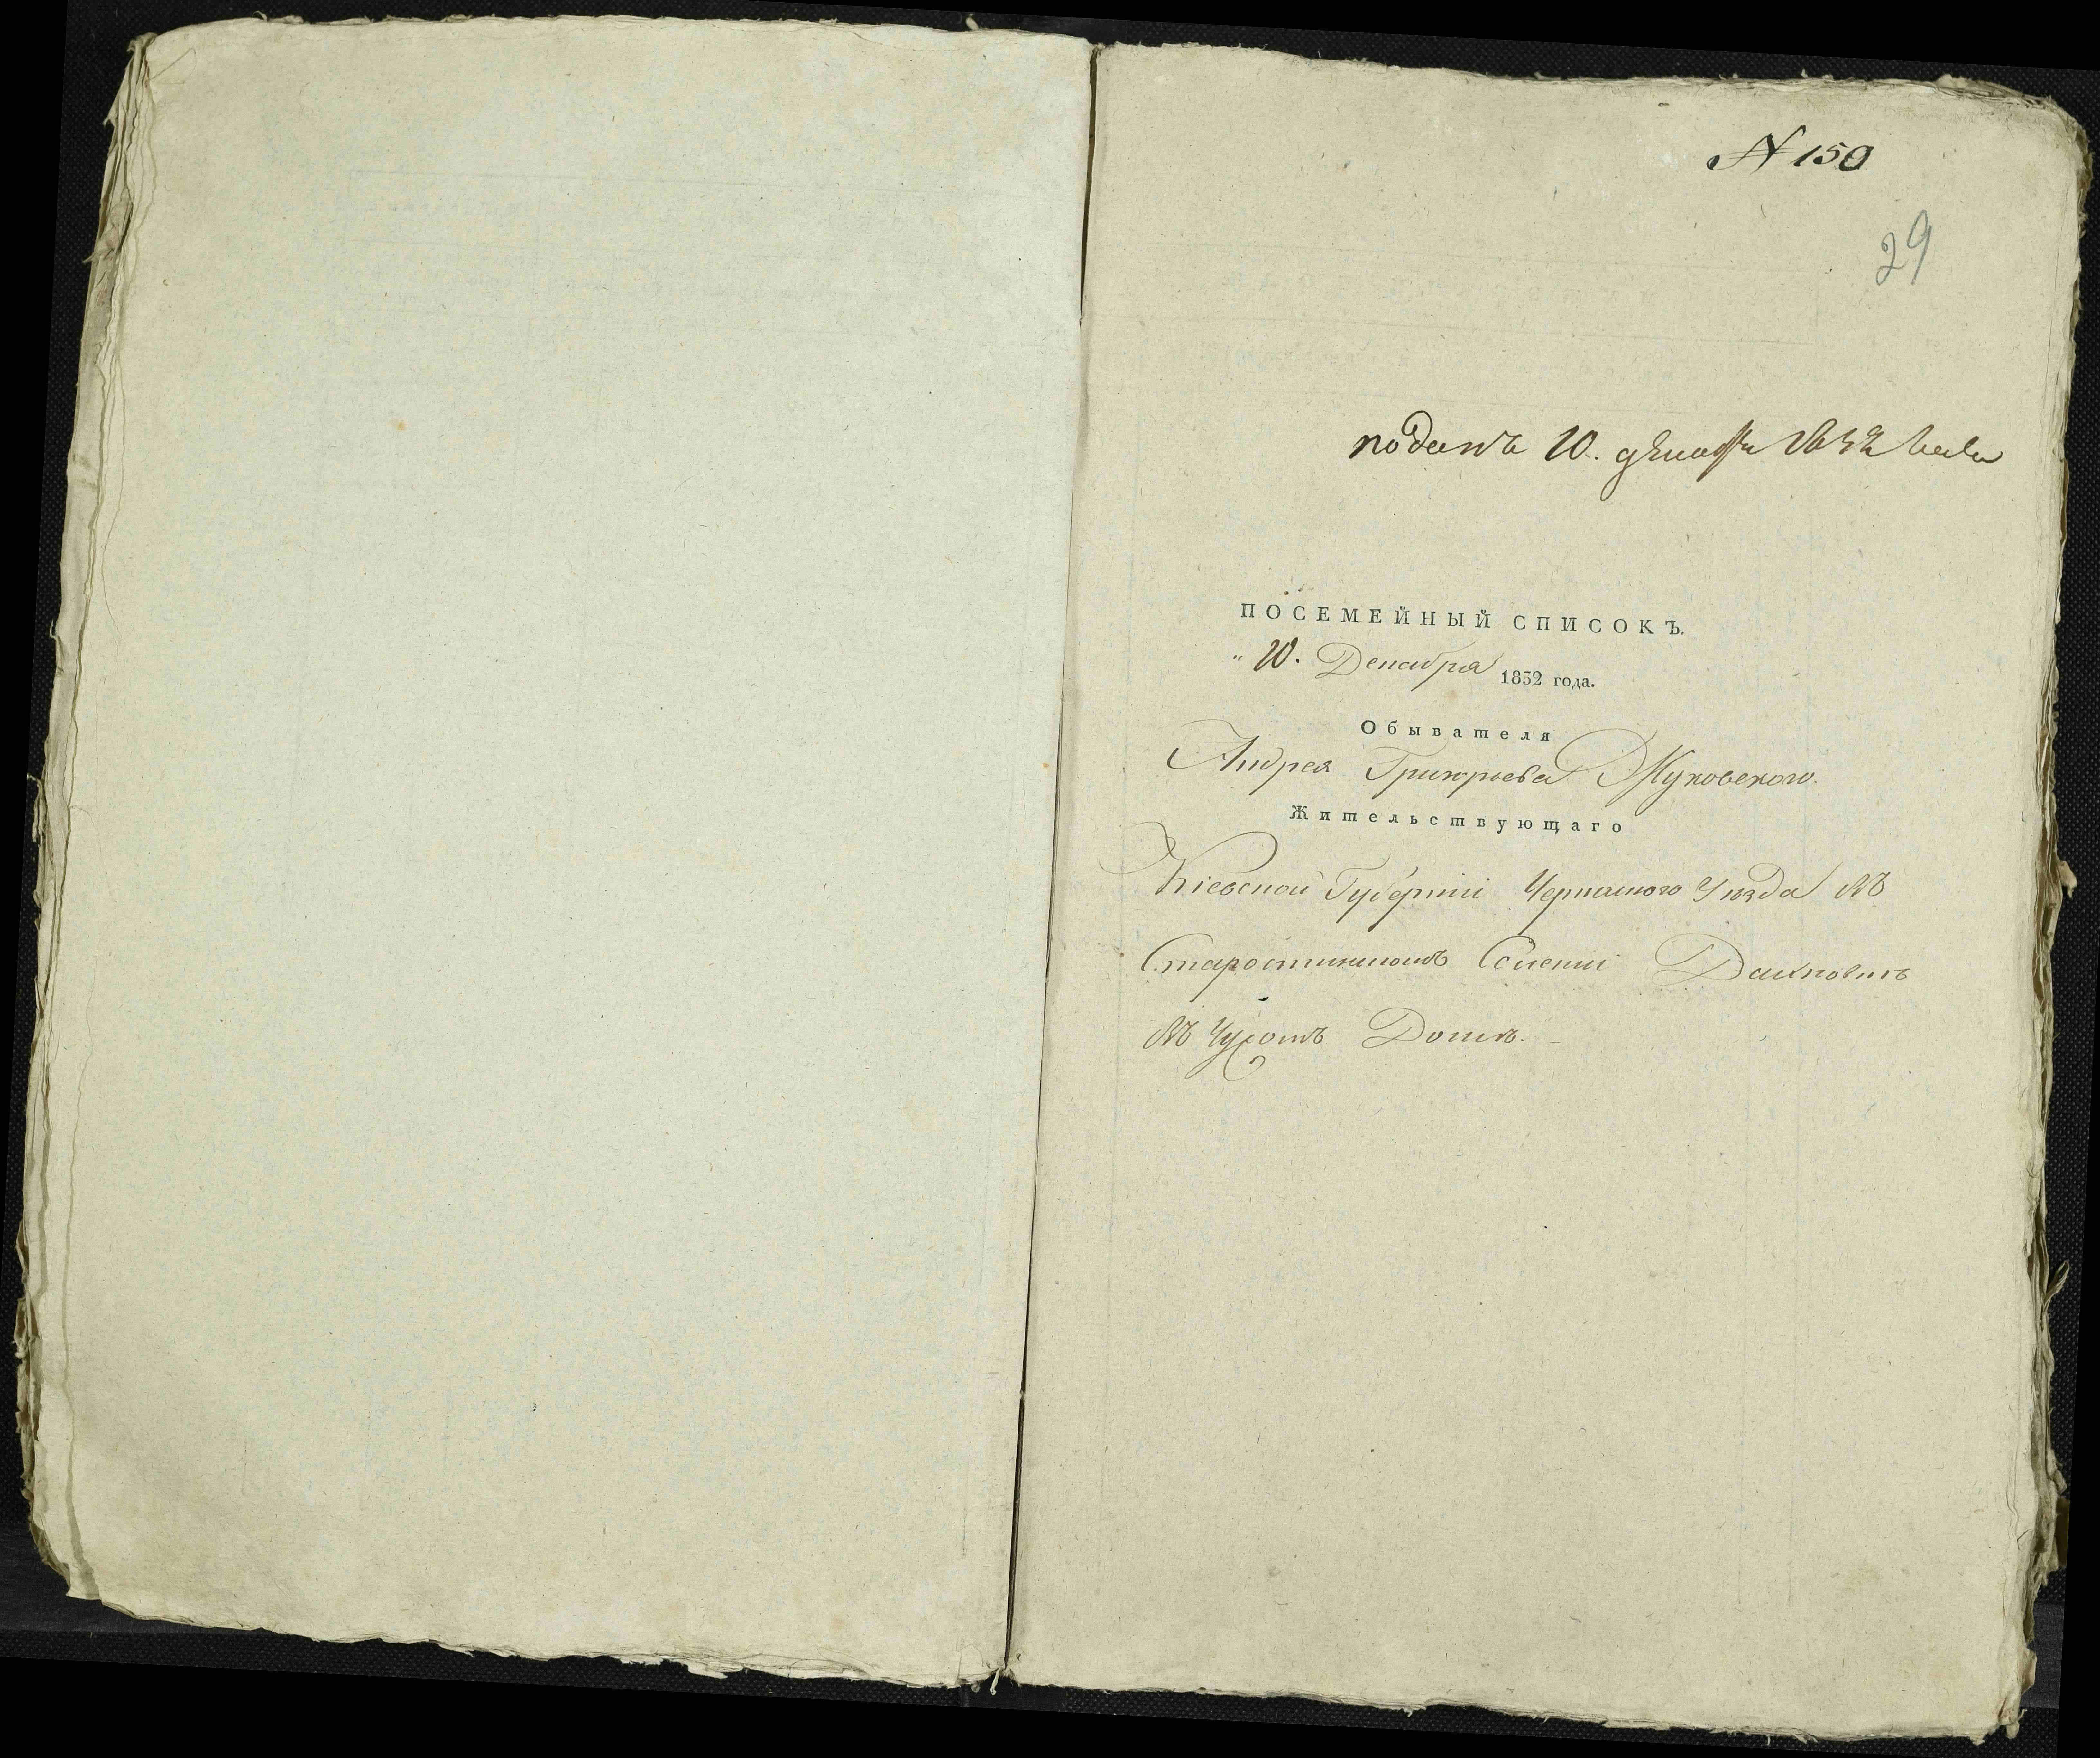 № 150
29
поданъ 10. декабря 1832 года
ПОСЕМЕЙНЫЙ СПИСОКЪ.
„ 10. Декабря 1832 года.
Обывателя
Андрея Григорьева Жуковского.
Жительствующаго
Кіевской Губерніи Черкаского Уѣзда въ
Старостинскомъ Селеніи
въ Чужомъ Домѣ.